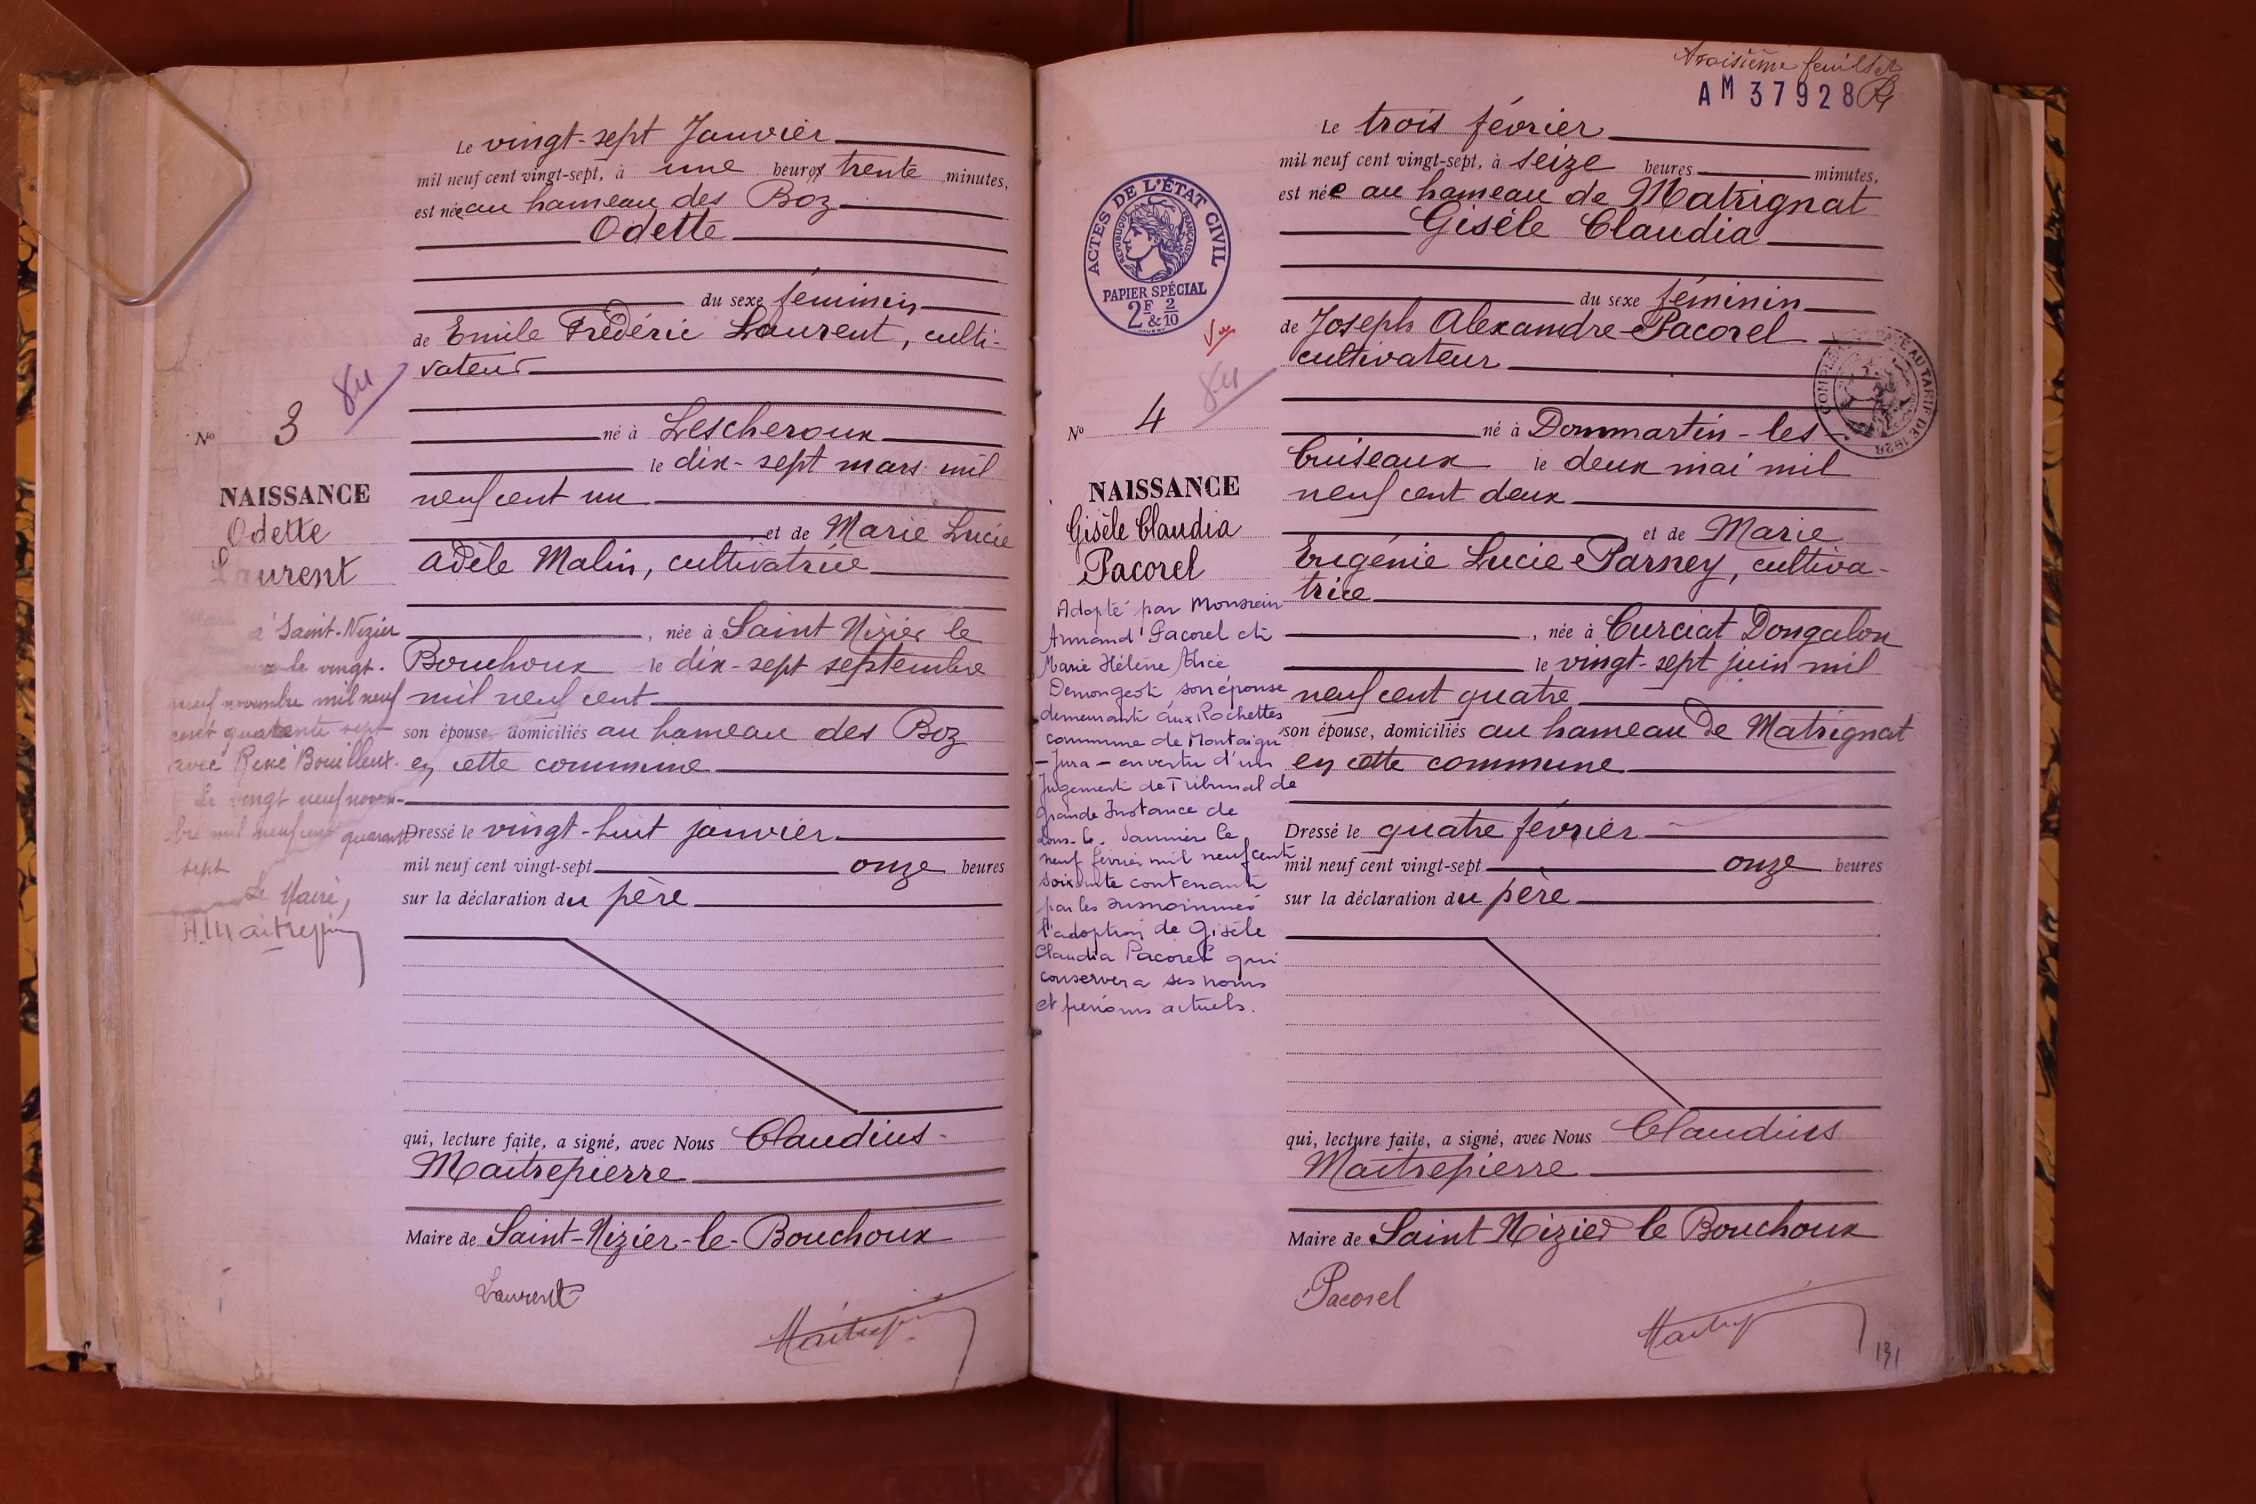 Le vingt-sept Janvier
mil neuf cent vingt-sept, à une heures trente minutes,
est née au hameau des Boz
Odette
du sexe féminin
de Emile Frédéric Laurent, culti-
vateur
né à Lescheroux
le dix-sept mars mil
neuf cent un
et de Marie Lucie
Adèle Malin, cultivatrice
, née à Saint Nizier le
Bouchoux le dix-sept septembre
mil neuf cent
son épouse, domiciliés au hameau des Boz
en cette commune
Dressé le vingt-huit janvier
mil neuf cent vingt-sept onze heures
sur la déclaration du père
qui, lecture faite, a signé, avec Nous Claudius
Maitrepierre
Maire de Saint-Nizier-le-Bouchoux
Laurent
84
No 3
NAISSANCE
Odette
Laurent
à Saint-Nizier
le vingt-
neuf novembre mil neuf
cent quarante sept
avec René Bouilleux.
Le vingt neuf novem-
bre mil neuf cent quarante
sept
Le Maire,
troisième feuillet
AM 37928
Le trois février
mil neuf cent vingt-sept, à seize heures minutes,
est née au hameau de Matrignat
Gisèle Claudia
du sexe féminin
de Joseph Alexandre Pacorel
cultivateur
né à Dommartin-les-
Cuiseaux le deux mai mil
neuf cent deux
et de Marie
Eugénie Lucie Parney, cultiva-
trice
, née à Curciat Dongalon
le vingt-sept juin mil
neuf cent quatre
son épouse, domiciliés au hameau de Matrignat
en cette commune
Dressé le quatre février
mil neuf cent vingt-sept onze heures
sur la déclaration du père
qui, lecture faite, a signé, avec Nous Claudius
Maitrepierre
Maire de Saint Nizier le Bouchoux
Pacorel
131
ACTES DE L'ÉTAT CIVIL
RÉPUBLIQUE FRANÇAISE
PAPIER SPÉCIAL
2F & 2/10
Vu
84
No 4
NAISSANCE
Gisèle Claudia
Pacorel
Adopté par Monsieur
Armand Pacorel et
Marie Hélène Alice
Demongeot son épouse
demeurant aux Rochettes
commune de Montaigu
- Jura - en vertu d'un
Jugement de Tribunal de
Grande Instance de
Lons-le-Saunier le
neuf février mil neuf cent
soixante contenant
par les susnommés
l'adoption de Gisèle
Claudia Pacorel qui
conservera ses noms
et prénoms actuels.